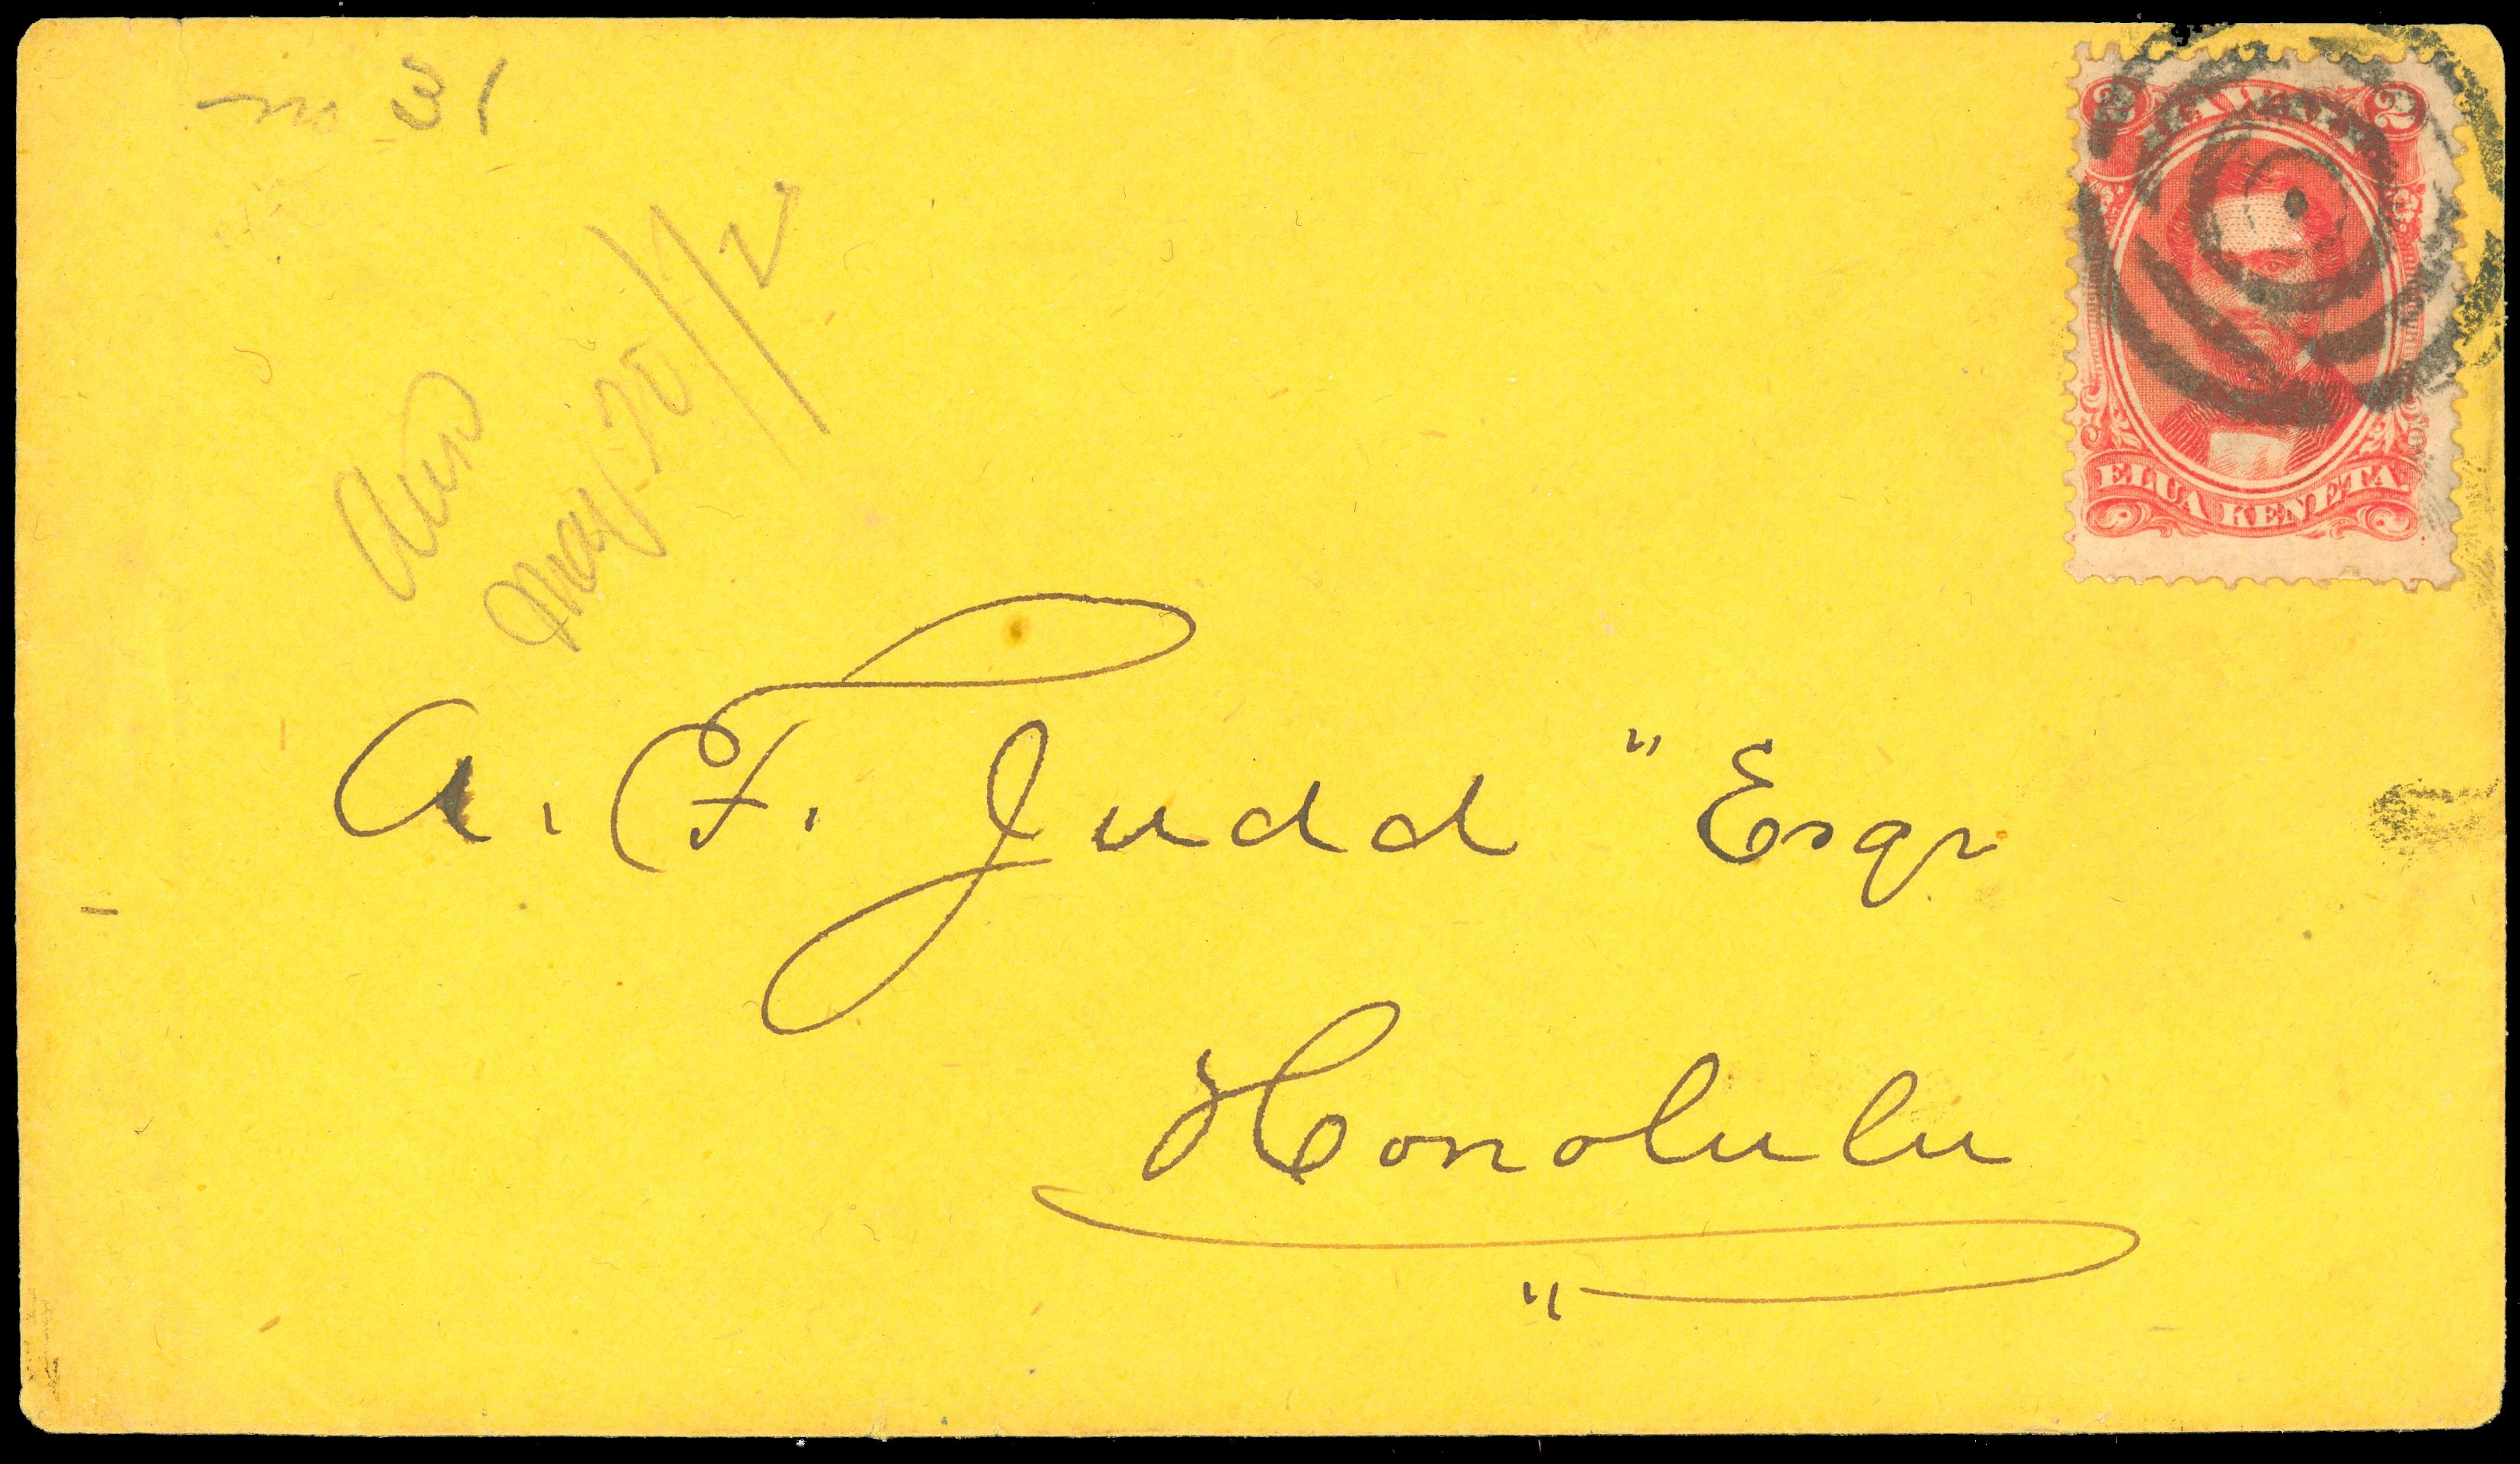 no 31
2 HAWAII 2
ELUA KENETA
Ans
May 20 / 72
A. F. Judd " Esqr
Honolulu
"